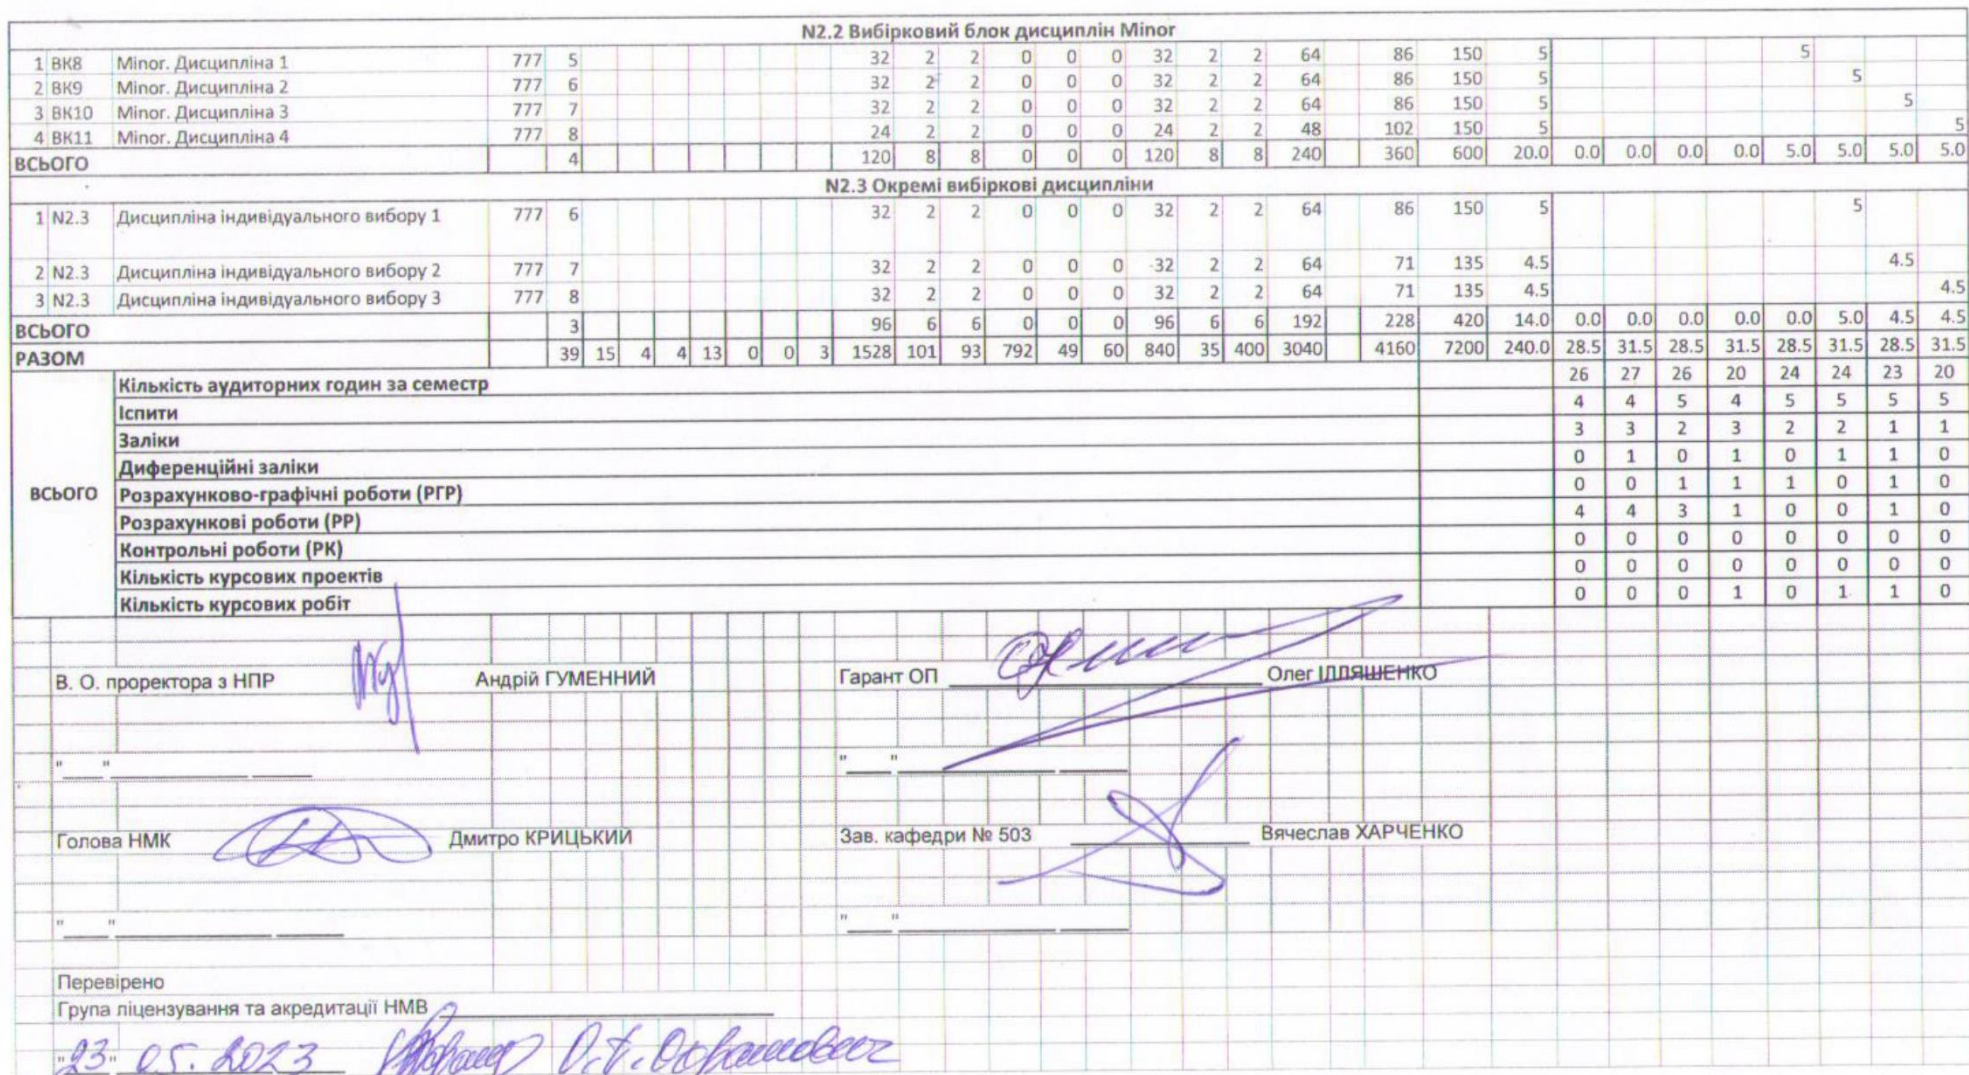 N2.2 Вибірковий блок дисциплін Minor
1 ВК8 Minor. Дисципліна 1 777 5 32 2 2 0 0 0 32 2 2 64 86 150 5 5
2 ВК9 Minor. Дисципліна 2 777 6 32 2 2 0 0 0 32 2 2 64 86 150 5 5
3 ВК10 Minor. Дисципліна 3 777 7 32 2 2 0 0 0 32 2 2 64 86 150 5 5
4 ВК11 Minor. Дисципліна 4 777 8 24 2 2 0 0 0 24 2 2 48 102 150 5 5
ВСЬОГО 4 120 8 8 0 0 0 120 8 8 240 360 600 20.0 0.0 0.0 0.0 0.0 5.0 5.0 5.0 5.0
N2.3 Окремі вибіркові дисципліни
1 N2.3 Дисципліна індивідуального вибору 1 777 6 32 2 2 0 0 0 32 2 2 64 86 150 5 5
2 N2.3 Дисципліна індивідуального вибору 2 777 7 32 2 2 0 0 0 32 2 2 64 71 135 4.5 4.5
3 N2.3 Дисципліна індивідуального вибору 3 777 8 32 2 2 0 0 0 32 2 2 64 71 135 4.5 4.5
ВСЬОГО 3 96 6 6 0 0 0 96 6 6 192 228 420 14.0 0.0 0.0 0.0 0.0 0.0 5.0 4.5 4.5
РАЗОМ 39 15 4 4 13 0 0 3 1528 101 93 792 49 60 840 35 400 3040 4160 7200 240.0 28.5 31.5 28.5 31.5 28.5 31.5 28.5 31.5
Кількість аудиторних годин за семестр 26 27 26 20 24 24 23 20
Іспити 4 4 5 4 5 5 5 5
Заліки 3 3 2 3 2 2 1 1
Диференційні заліки 0 1 0 1 0 1 1 0
ВСЬОГО Розрахунково-графічні роботи (РГР) 0 0 1 1 1 0 1 0
Розрахункові роботи (РР) 4 4 3 1 0 0 1 0
Контрольні роботи (РК) 0 0 0 0 0 0 0 0
Кількість курсових проектів 0 0 0 0 0 0 0 0
Кількість курсових робіт 0 0 0 1 0 1 1 0
В. О. проректора з НПР Андрій ГУМЕННИЙ Гарант ОП Олег ІЛЛЯШЕНКО
"____"____________ _____ "____"____________ _____
Голова НМК Дмитро КРИЦЬКИЙ Зав. кафедри № 503 Вячеслав ХАРЧЕНКО
"____"____________ _____ "____"____________ _____
Перевірено
Група ліцензування та акредитації НМВ
"23" 05. 2023